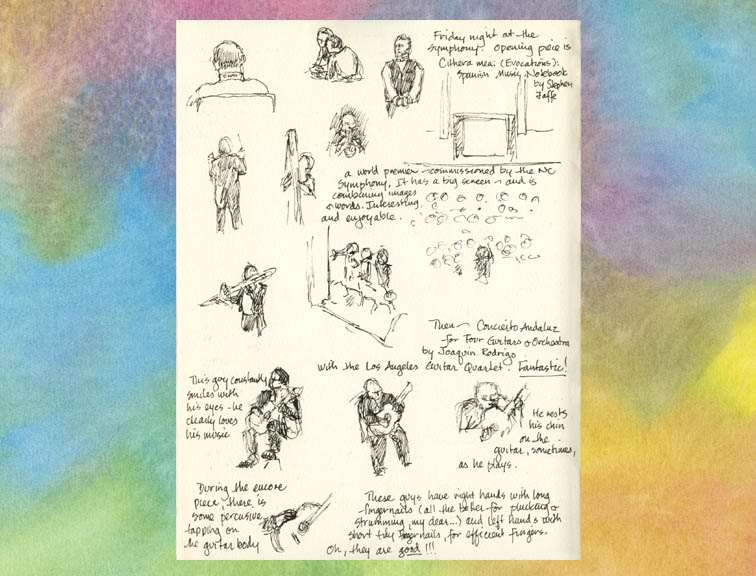 Friday night at the
symphony. Opening piece is
Cithera mea: (Evocations):
Spanish Music Notebook
by Stephen
Jaffe
a world premier ~ commissioned by the NC
Symphony. It has a big screen ~ and is
combining images
& words. Interesting
and enjoyable.
Then ~ Concierto Andaluz
for Four Guitars & Orchestra
by Joaquin Rodrigo
with the Los Angeles Guitar Quartet. Fantastic!
This guy constantly
smiles with
his eyes - he
clearly loves
his music
He rests
his chin
on the
guitar, sometimes,
as he plays.
During the encore
piece, there is
some percusive
tapping on
the guitar body
These guys have right hands with long
fingernails (all the better for plucking &
strumming, my dear...) and left hands with
short tidy fingernails, for efficient fingers.
Oh, they are good!!!